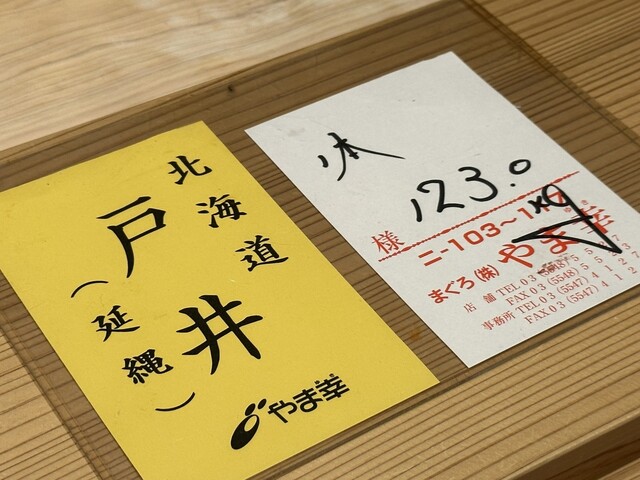 北海道
戸井
（延縄）
やま幸
本
123.0
kg
様
ニ-103~1
まぐろ(株)やま幸
店 舗 TEL 03
FAX 03 (5548) 5
事務所 TEL 03 (5547) 4
FAX 03 (5547) 4